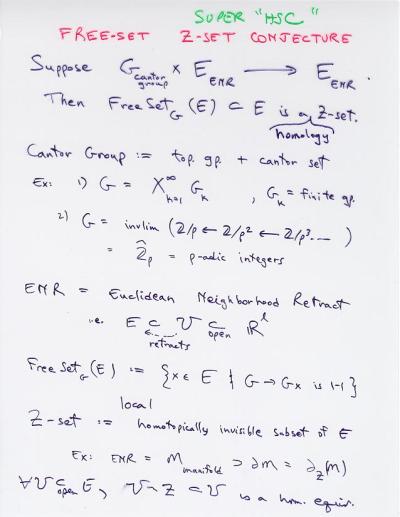 SUPER "HSC"
FREE-SET Z-SET CONJECTURE
Suppose G_{cantor group} × E_{ENR} ⟶ E_{ENR}.
Then FreeSet_G(E) ⊂ E is a Z-set.
homology
Cantor Group := top. gp. + cantor set
Ex: 1) G = X_{k=1}^∞ G_k , G_k = finite gp.
2) G = invlim (Z/p ← Z/p² ← Z/p³ ...)
= Ẑ_p = p-adic integers
ENR = Euclidean Neighborhood Retract
i.e. E ⊂ U ⊂_{open} R^l
retracts
FreeSet_G(E) := {x ∈ E | G → Gx is 1-1}
local
Z-set := homotopically invisible subset of E
Ex: ENR = M_{manifold} ⊃ ∂M = ∂_Z(M)
∀U ⊂_{open} E, U - Z ⊂ U is a hom. equiv.